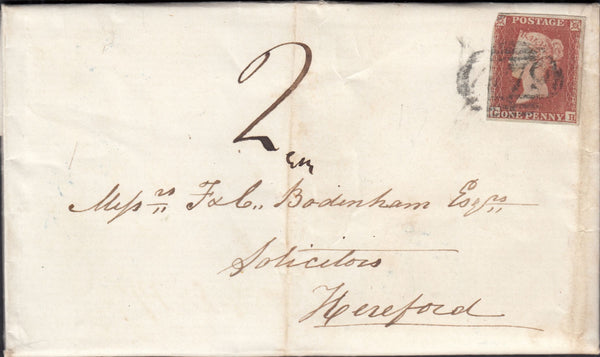 POSTAGE
ONE PENNY
2
Messrs F & C. Bodenham Esqrs
Solicitors
Hereford